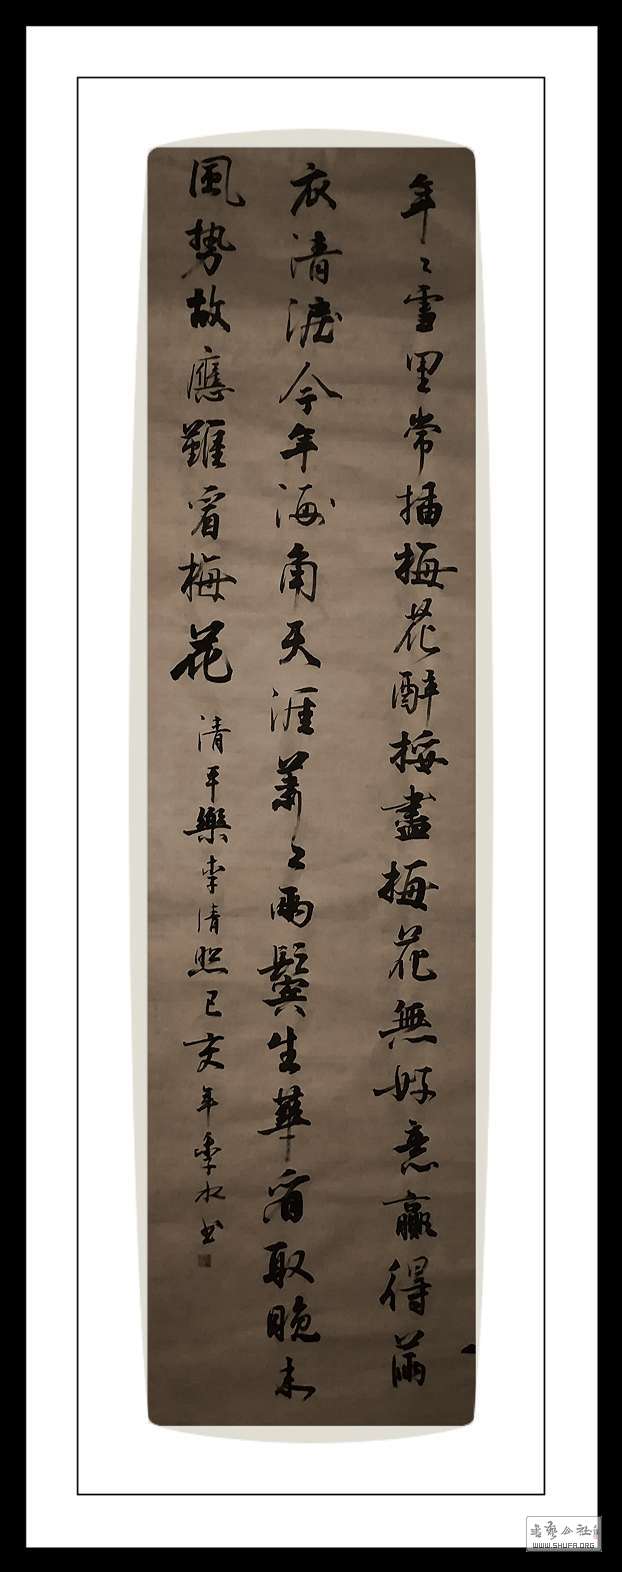 年〻雪里常插梅花醉挼盡梅花無好意贏得滿
衣清淚今年海角天涯蕭〻兩鬓生華看取晚來
風势故應難看梅花
清平樂李清照己亥年季水书
WWW.SHUFA.ORG